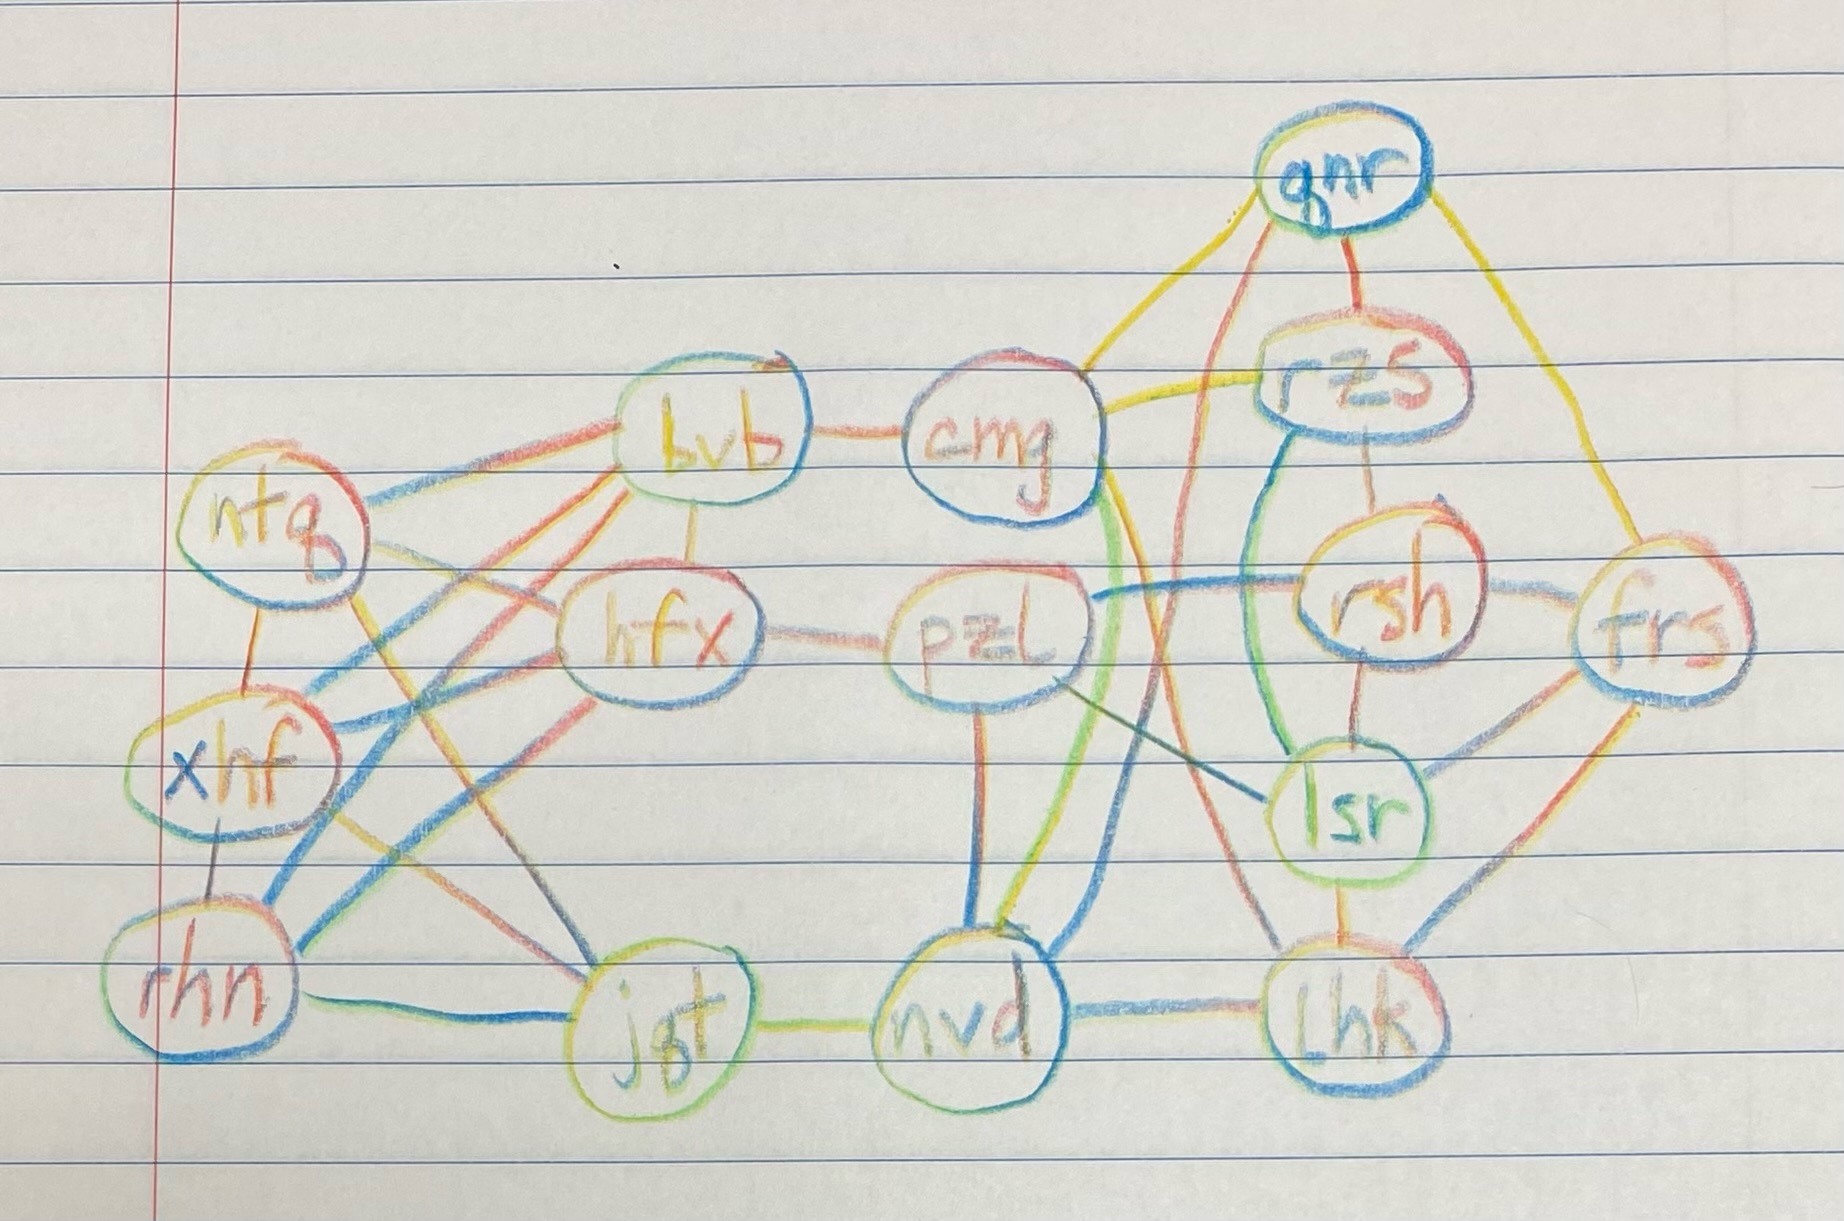 qnr
rzs
bvb cmg
ntq rsh
hfx pzl frs
xhf lsr
rhn jqt nvd lhk